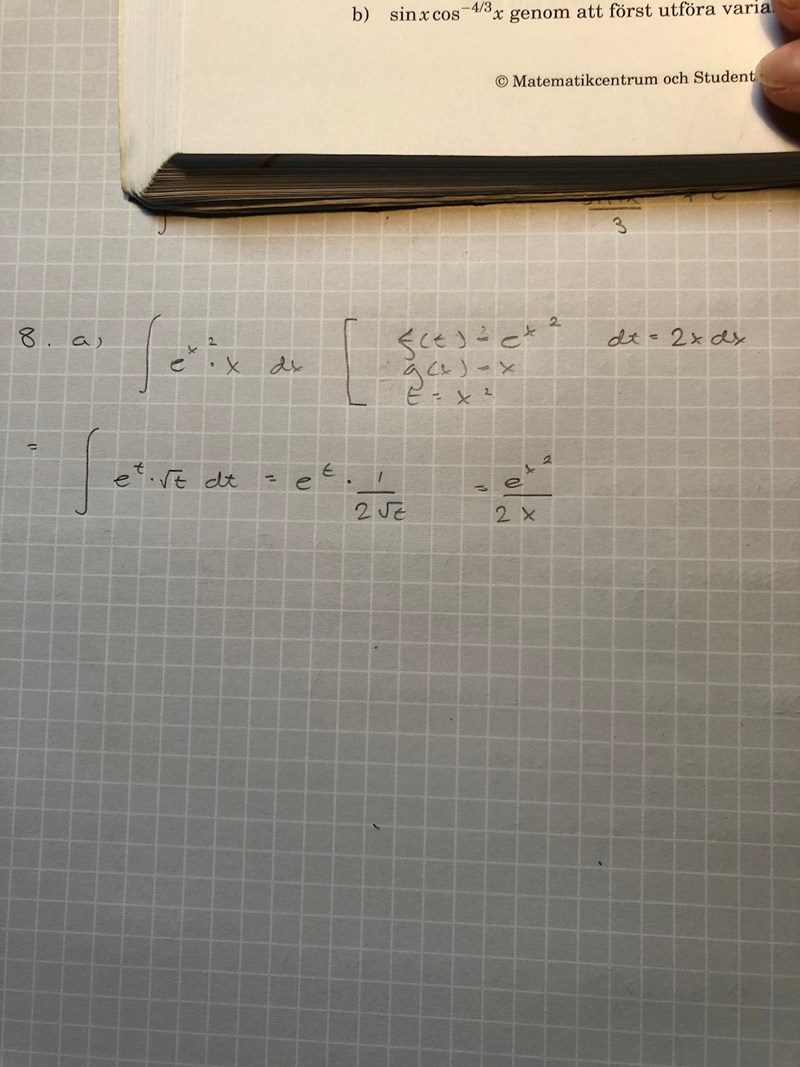 b) sin x cos⁻⁴/³ x genom att först utföra
© Matematikcentrum och Student
3
8. a) ∫ e^x² · x dx [ f(t) = e^x² dt = 2x dx
g(x) = x
t = x²
= ∫ e^t · √t dt = e^t · 1/(2√t) = e^x²/(2x)